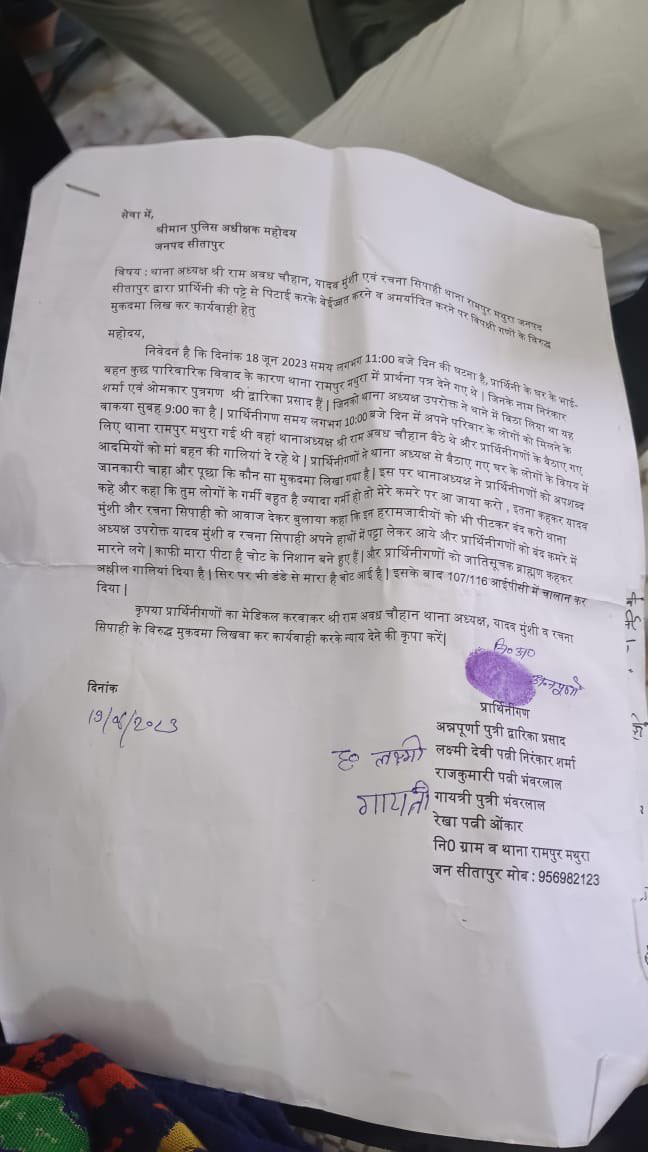 सेवा में,
श्रीमान पुलिस अधीक्षक महोदय
जनपद सीतापुर
विषय : थाना अध्यक्ष श्री राम अवध चौहान, यादव मुंशी एवं रचना सिपाही थाना रामपुर मथुरा जनपद
सीतापुर द्वारा प्रार्थिनी की पट्टे से पिटाई करके बेईज्जत करने व अमर्यादित करने पर विपक्षी गणों के विरुद्ध
मुकदमा लिख कर कार्यवाही हेतु
महोदय,
निवेदन है कि दिनांक 18 जून 2023 समय लगभग 11:00 बजे दिन की घटना है, प्रार्थिनी के घर के भाई-
बहन कुछ पारिवारिक विवाद के कारण थाना रामपुर मथुरा में प्रार्थना पत्र देने गए थे | जिनके नाम निरंकार
शर्मा एवं ओमकार पुत्रगण श्री द्वारिका प्रसाद हैं | जिनको थाना अध्यक्ष उपरोक्त ने थाने में बिठा लिया था यह
वाकया सुबह 9:00 का है | प्रार्थिनीगण समय लगभग 10:00 बजे दिन में अपने परिवार के लोगों को मिलने के
लिए थाना रामपुर मथुरा गई थी वहां थानाअध्यक्ष श्री राम अवध चौहान बैठे थे और प्रार्थिनीगणों के बैठाए गए
आदमियों को मां बहन की गालियां दे रहे थे | प्रार्थिनीगणों ने थाना अध्यक्ष से बैठाए गए घर के लोगों के विषय में
जानकारी चाहा और पूछा कि कौन सा मुकदमा लिखा गया है | इस पर थानाअध्यक्ष ने प्रार्थिनीगणों को अपशब्द
कहे और कहा कि तुम लोगों के गर्मी बहुत है ज्यादा गर्मी हो तो मेरे कमरे पर आ जाया करो , इतना कहकर यादव
मुंशी और रचना सिपाही को आवाज देकर बुलाया कहा कि इन हरामजादीयों को भी पीटकर बंद करो थाना
अध्यक्ष उपरोक्त यादव मुंशी व रचना सिपाही अपने हाथों में पट्टा लेकर आये और प्रार्थिनीगणों को बंद कमरे में
मारने लगे | काफी मारा पीटा है चोट के निशान बने हुए हैं | और प्रार्थिनीगणों को जातिसूचक ब्राह्मण कहकर
अश्लील गालियां दिया है | सिर पर भी डंडे से मारा है चोट आई है | इसके बाद 107/116 आईपीसी में चालान कर
दिया |
कृपया प्रार्थिनीगणों का मेडिकल करवाकर श्री राम अवध चौहान थाना अध्यक्ष, यादव मुंशी व रचना
सिपाही के विरुद्ध मुकदमा लिखवा कर कार्यवाही करके न्याय देने की कृपा करें|
दिनांक
प्रार्थिनीगण
अन्नपूर्णा पुत्री द्वारिका प्रसाद
ह० लक्ष्मी लक्ष्मी देवी पत्नी निरंकार शर्मा
राजकुमारी पत्नी भंवरलाल
गायत्री गायत्री पुत्री भंवरलाल
रेखा पत्नी ओंकार
नि0 ग्राम व थाना रामपुर मथुरा
जन सीतापुर मोब : 956982123